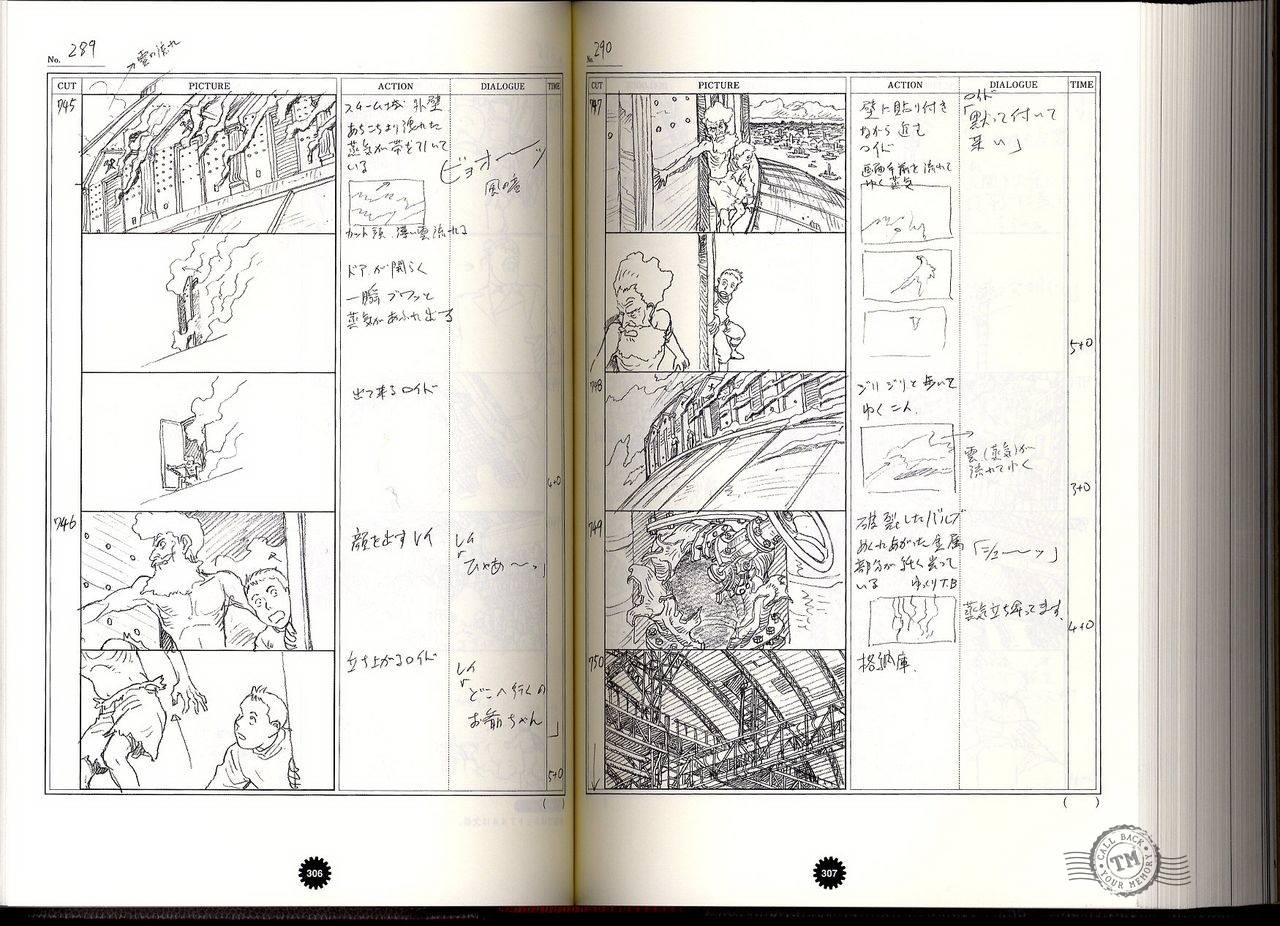 No. 289
雲の流れ
CUT PICTURE ACTION DIALOGUE TIME
745
スチーム城 外壁
あちこちより洩れた
蒸気が帯を引いて
いる
ビョオーーッ
風の音
カット頭 薄い雲流れる
ドアが開らく
一瞬 ブワッと
蒸気があふれ出す
出て来るロイド
4+0
746
顔を出すレイ
レイ
「ひゃあ〜っ」
立ち上がるロイド
レイ
「どこへ行くの
お爺ちゃん」
5+0
( )
306
No. 290
CUT PICTURE ACTION DIALOGUE TIME
747
壁に貼り付き
ながら進む
ロイド
画面手前を流れて
ゆく蒸気
ロイド
「黙って付いて
来い」
5+0
748
ジリジリと歩いて
ゆく二人.
雲(蒸気)が
流れてゆく
3+0
749
破裂したバルブ
めくれあがった金属
部分が
いる ゆっくりT.B
「シューーッ」
蒸気立ち昇ってます.
4+0
750
格納庫.
( )
307
CALL BACK
TM
YOUR MEMORY